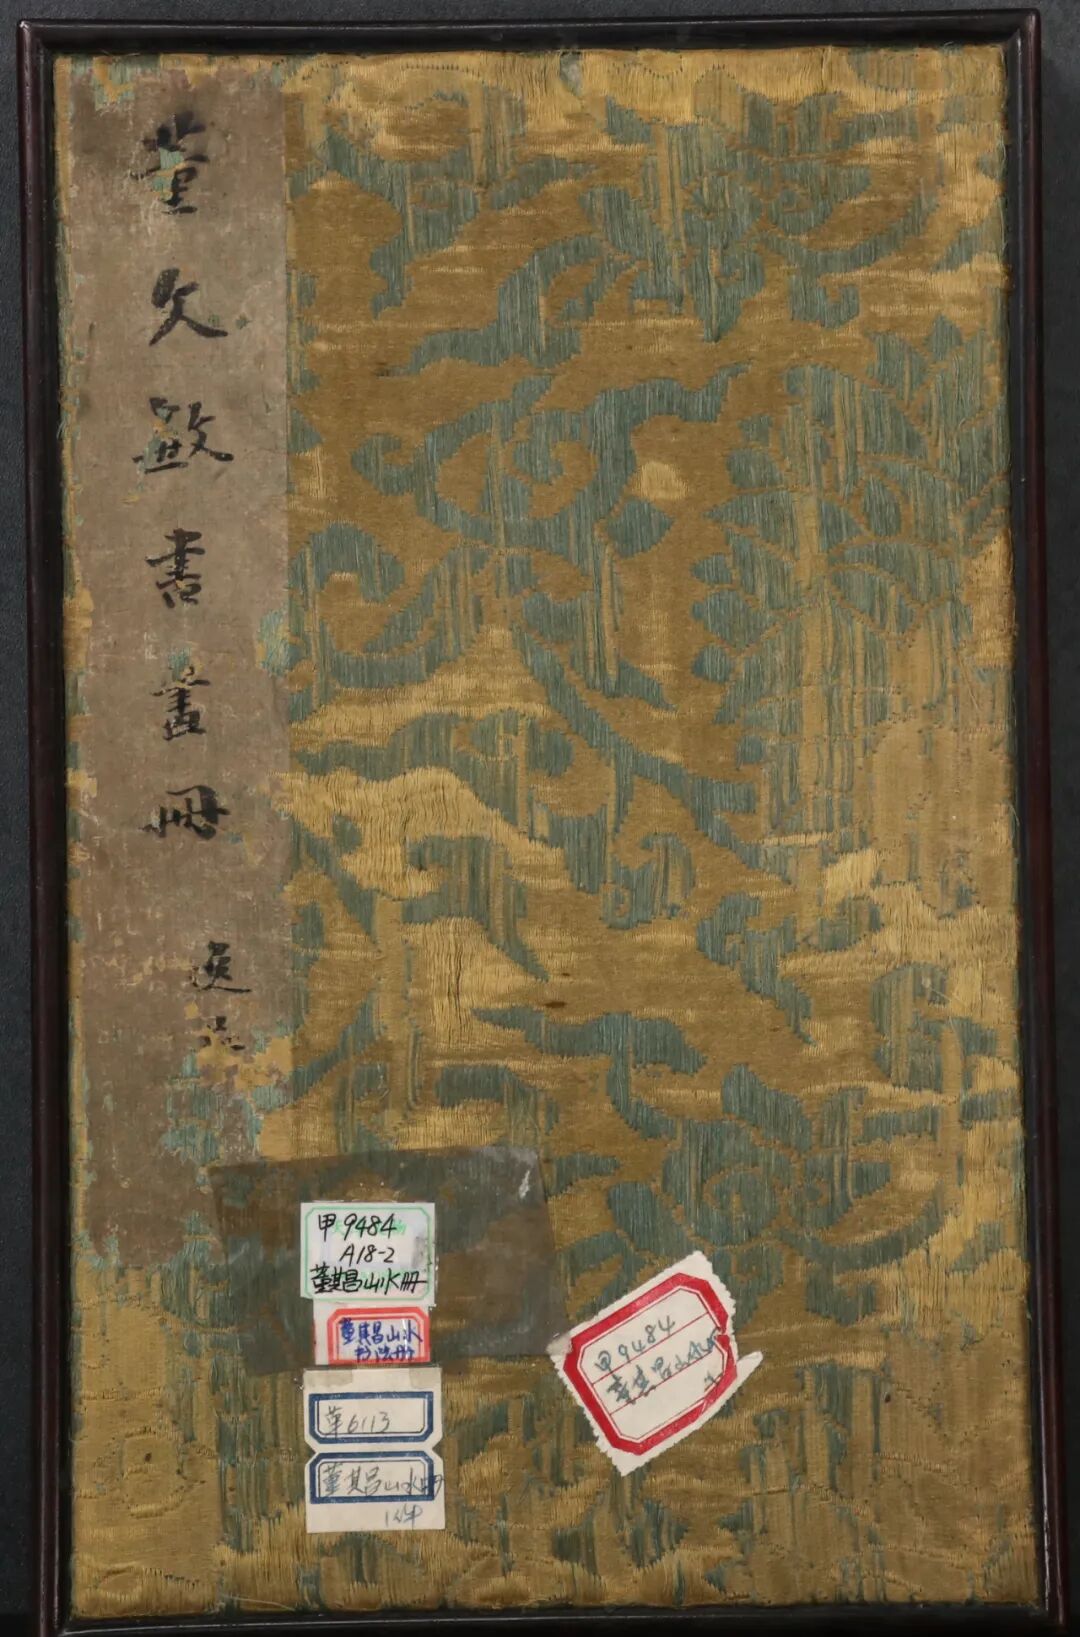 董文敏書畫冊
甲9484
A18-2
董其昌山水册
董其昌山水
书法册
革6113
董其昌山水册
1件
甲9484
董其昌山水